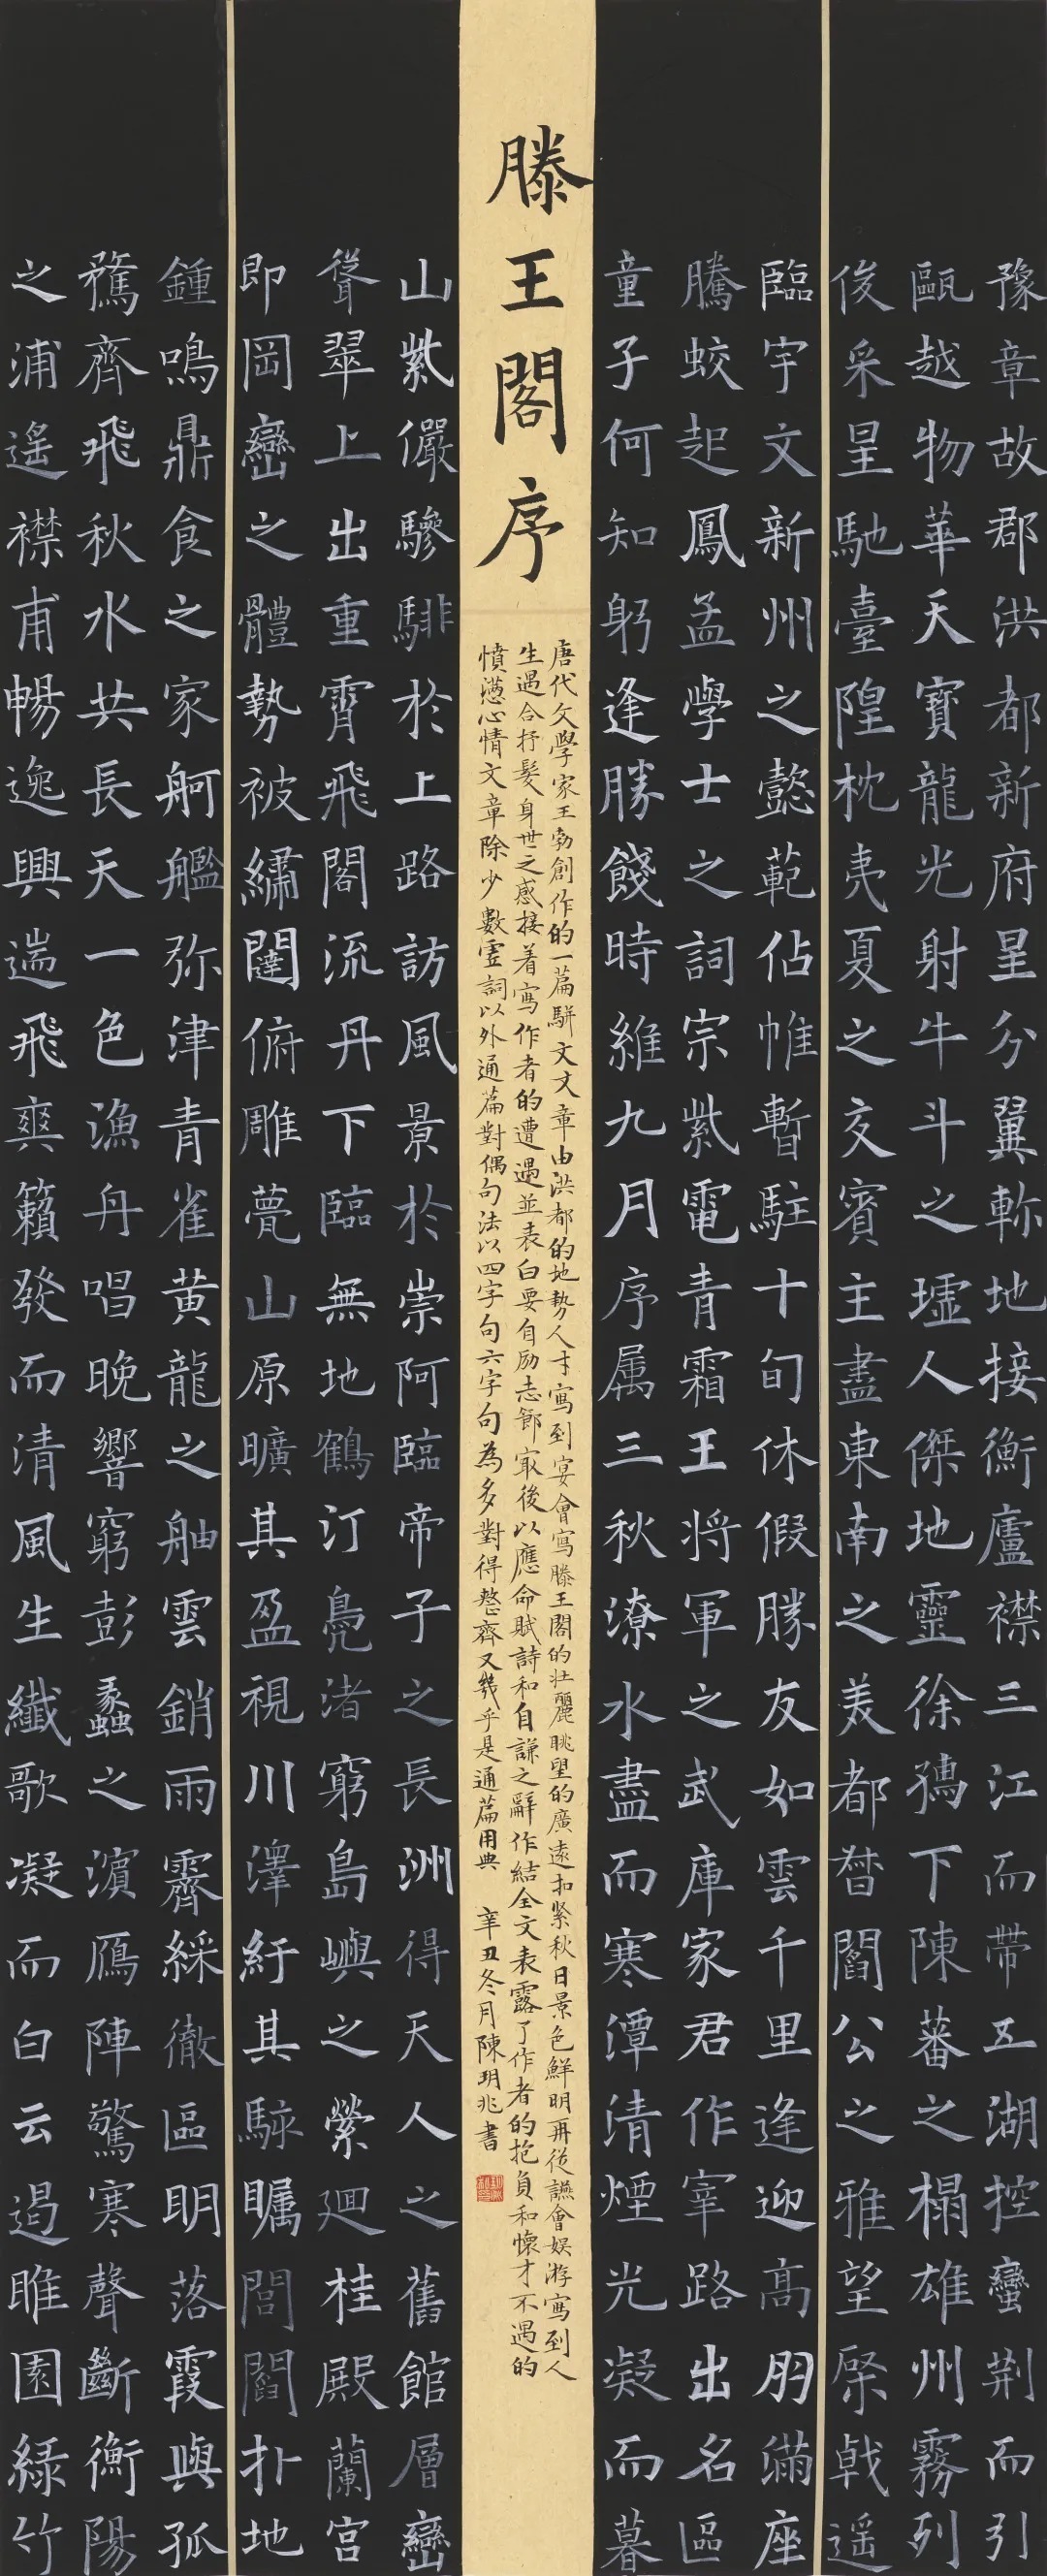 豫章故郡洪都新府呈分翼軫地接衡廬襟三江而帶五湖控蠻荊而引
甌越物華天寶龍光射牛斗之墟人傑地靈徐孺下陳蕃之榻雄州霧列
俊采呈馳臺隍枕夷夏之交賓主盡東南之美都督閻公之雅望棨戟遥
臨宇文新州之懿範佔帷暫駐十旬休假勝友如雲千里逢迎高朋滿座
騰蛟起鳳孟學士之詞宗紫電青霜王将軍之武庫家君作宰路出名區
童子何知躬逢勝餞時維九月序属三秋潦水盡而寒潭清煙光凝而暮
滕王閣序
唐代文學家王勃創作的一篇駢文文章由洪都的地勢人才寫到宴會寫滕王閣的壮麗眺望的廣遠扣紧秋日景色鮮明再從讌會娱游寫到人
生遇合抒髮身世之感接着寫作者的遭遇並表白要自励志節最後以應命賦詩和自謙之辭作結全文表露了作者的抱負和懷才不遇的
憤懣心情文章除少數虛詞以外通篇對偶句法以四字句六字句為多對得整齊又幾乎是通篇用典 辛丑冬月陳玥兆書
山紫儼驂騑於上路訪風景於崇阿臨帝子之長洲得天人之舊館層巒
聳翠上出重霄飛閣流丹下臨無地鶴汀鳧渚窮島嶼之縈廻桂殿蘭宮
即岡巒之體勢被繡闥俯雕甍山原曠其盈視川澤紆其駭矚閭閻扑地
鍾鳴鼎食之家舸艦弥津青雀黄龍之舳雲銷雨霽綵徹區明落霞與孤
鶩齊飛秋水共長天一色漁舟唱晚響窮彭蠡之濱鴈陣驚寒聲斷衡陽
之浦遥襟甫暢逸興遄飛爽籟發而清風生纖歌凝而白云遏睢園緑竹